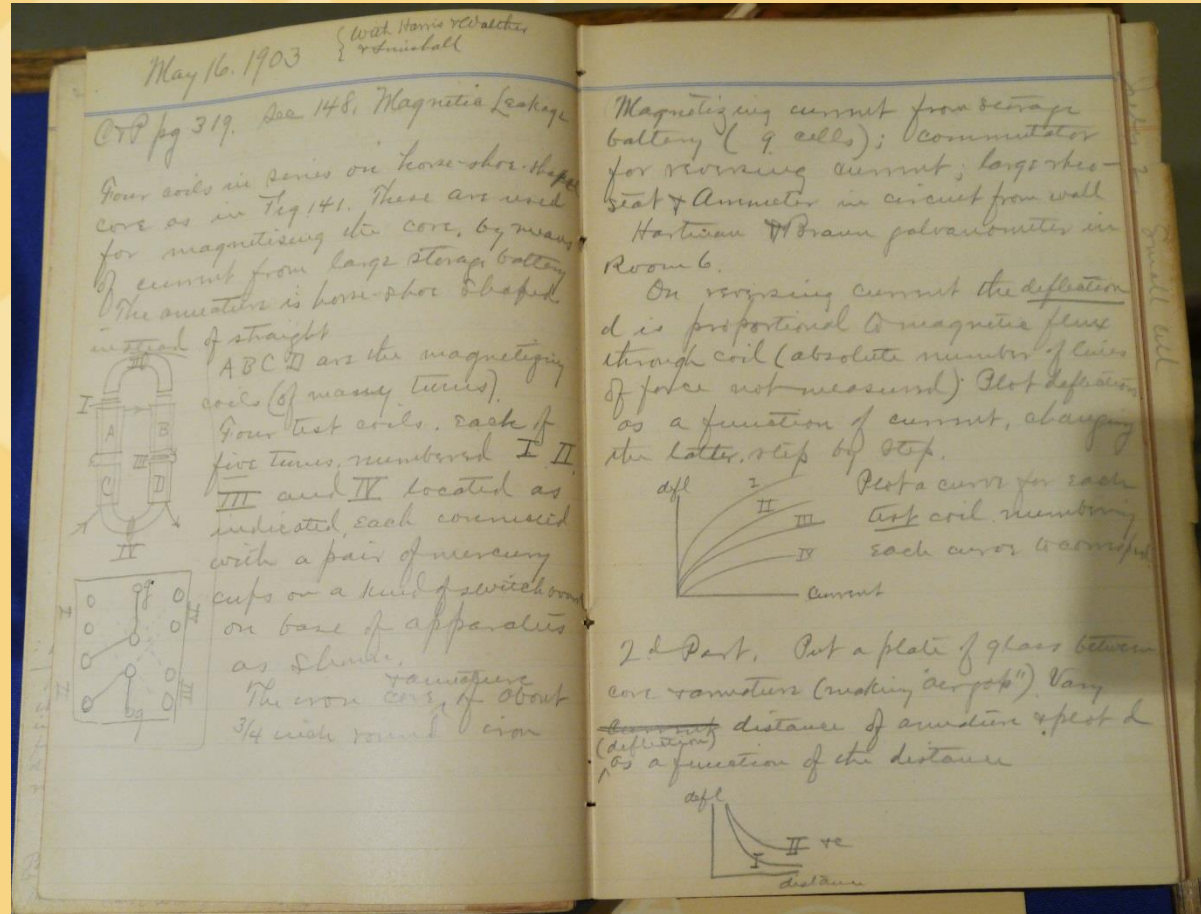 May 16. 1903
{ With Harris & Walther
{ &
C & P pg 319. Sec 148. Magnetic Leakage
Four coils in series on horse-shoe-shaped
core as in Fig 141. These are used
for magnetising the core, by means
of current from large storage battery
The armature is horse-shoe shaped
instead of straight
A B C D are the magnetizing
coils (of many turns).
Four test coils. Each of
five turns, numbered I II
III and IV located as
indicated, each connected
with a pair of mercury
cups on a kind of switchboard
on base of apparatus
as shown.
The iron core & armature of about
3/4 inch round iron
III
I
A B
III
C D
IV
I
II
g
g
IV
III
Magnetizing current from storage
battery (9 cells); commutator
for reversing current; large rheo-
stat & Ammeter in circuit from wall
Hartman & Braun galvanometer in
Room 6.
On reversing current the deflection
d is proportional to magnetic flux
through coil (absolute number of lines
of force not measured). Plot deflection
as a function of current, changing
the latter, step by step.
defl
I
II
III
IV
current
Plot a curve for each
test coil numbering
each curve to correspond.
2d Part. Put a plate of glass between
core & armature (making "air gap"). Vary
current distance of armature & plot d
(deflection)
as a function of the distance
defl
II &c
I
distance
Small Cell